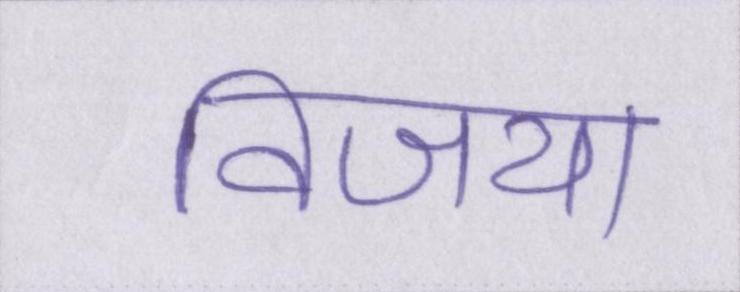 विजया